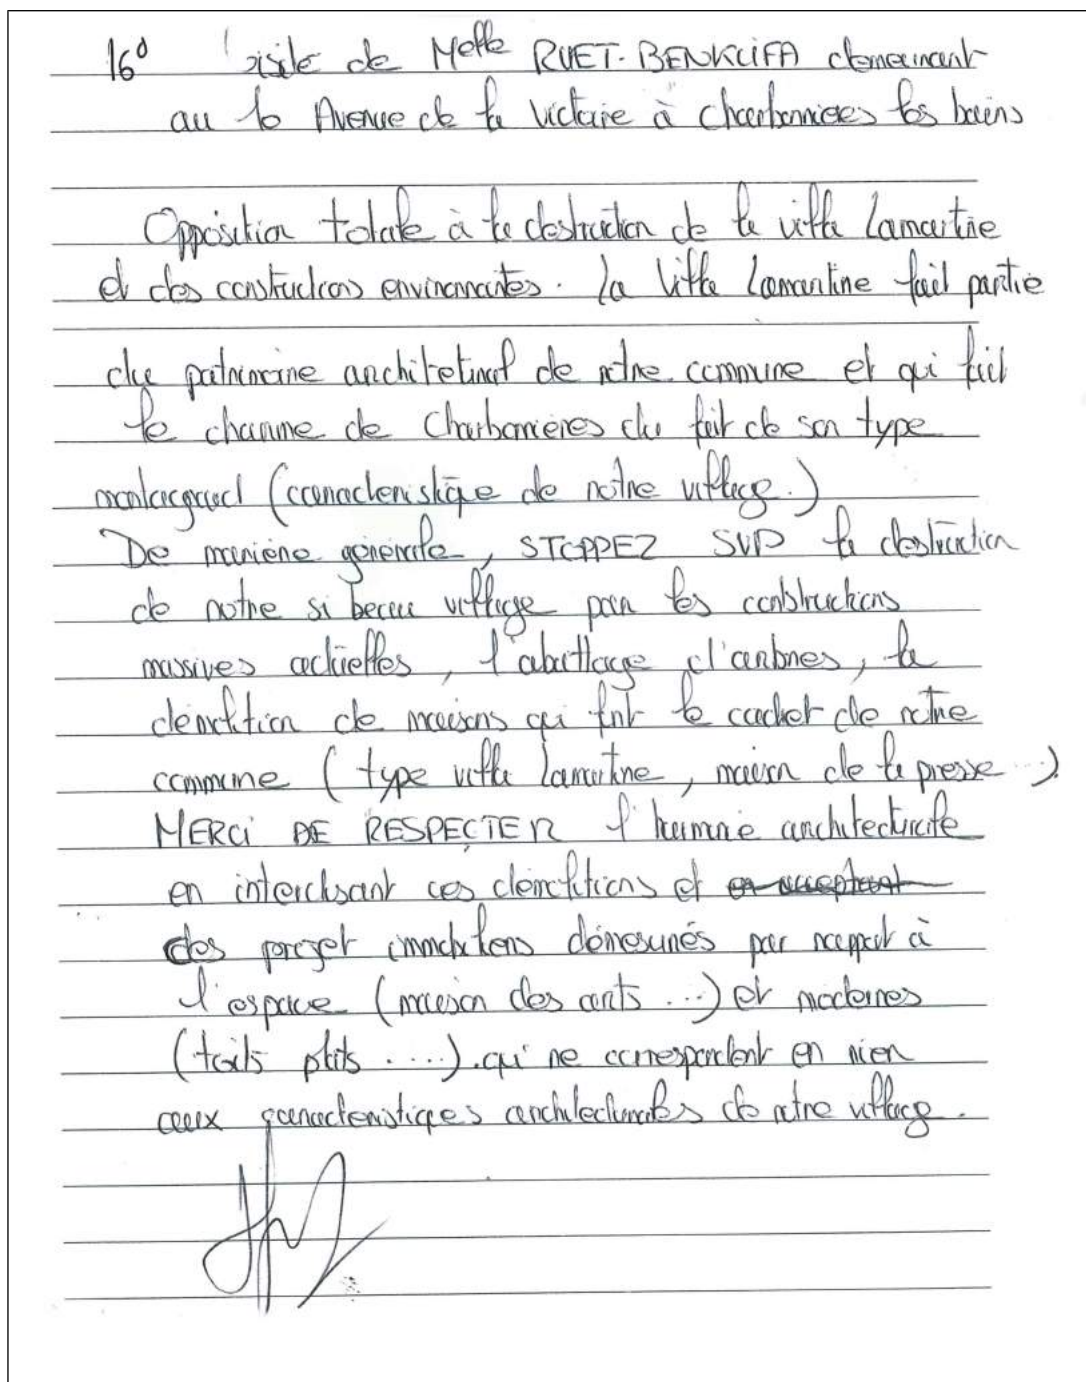 16° Visite de Melle RUET-BENKLIFA demeurant
au 10 Avenue de la Victoire à Charbonnières les bains
Opposition totale à la destruction de la villa Lamartine
et des constructions environnantes. La Villa Lamartine fait partie
du patrimoine architetural de notre commune et qui fait
le charme de Charbonnières du fait de son type
(caracteristique de notre village.)
De manière générale, STOPPEZ SVP la destruction
de notre si beau village par les constructions
massives actuelles, l'abattage d'arbres, la
démolition de maisons qui font le cachet de notre
commune (type villa Lamartine, maison de la presse ...)
MERCI DE RESPECTER l'harmonie architecturale
en interdisant ces démolitions et en acceptant
des projet immobiliers démesurés par rapport à
l'espace (maison des arts ...) et modernes
(toits plats .....). qui ne correspondent en rien
aux caracteristiques architecturales de notre village.